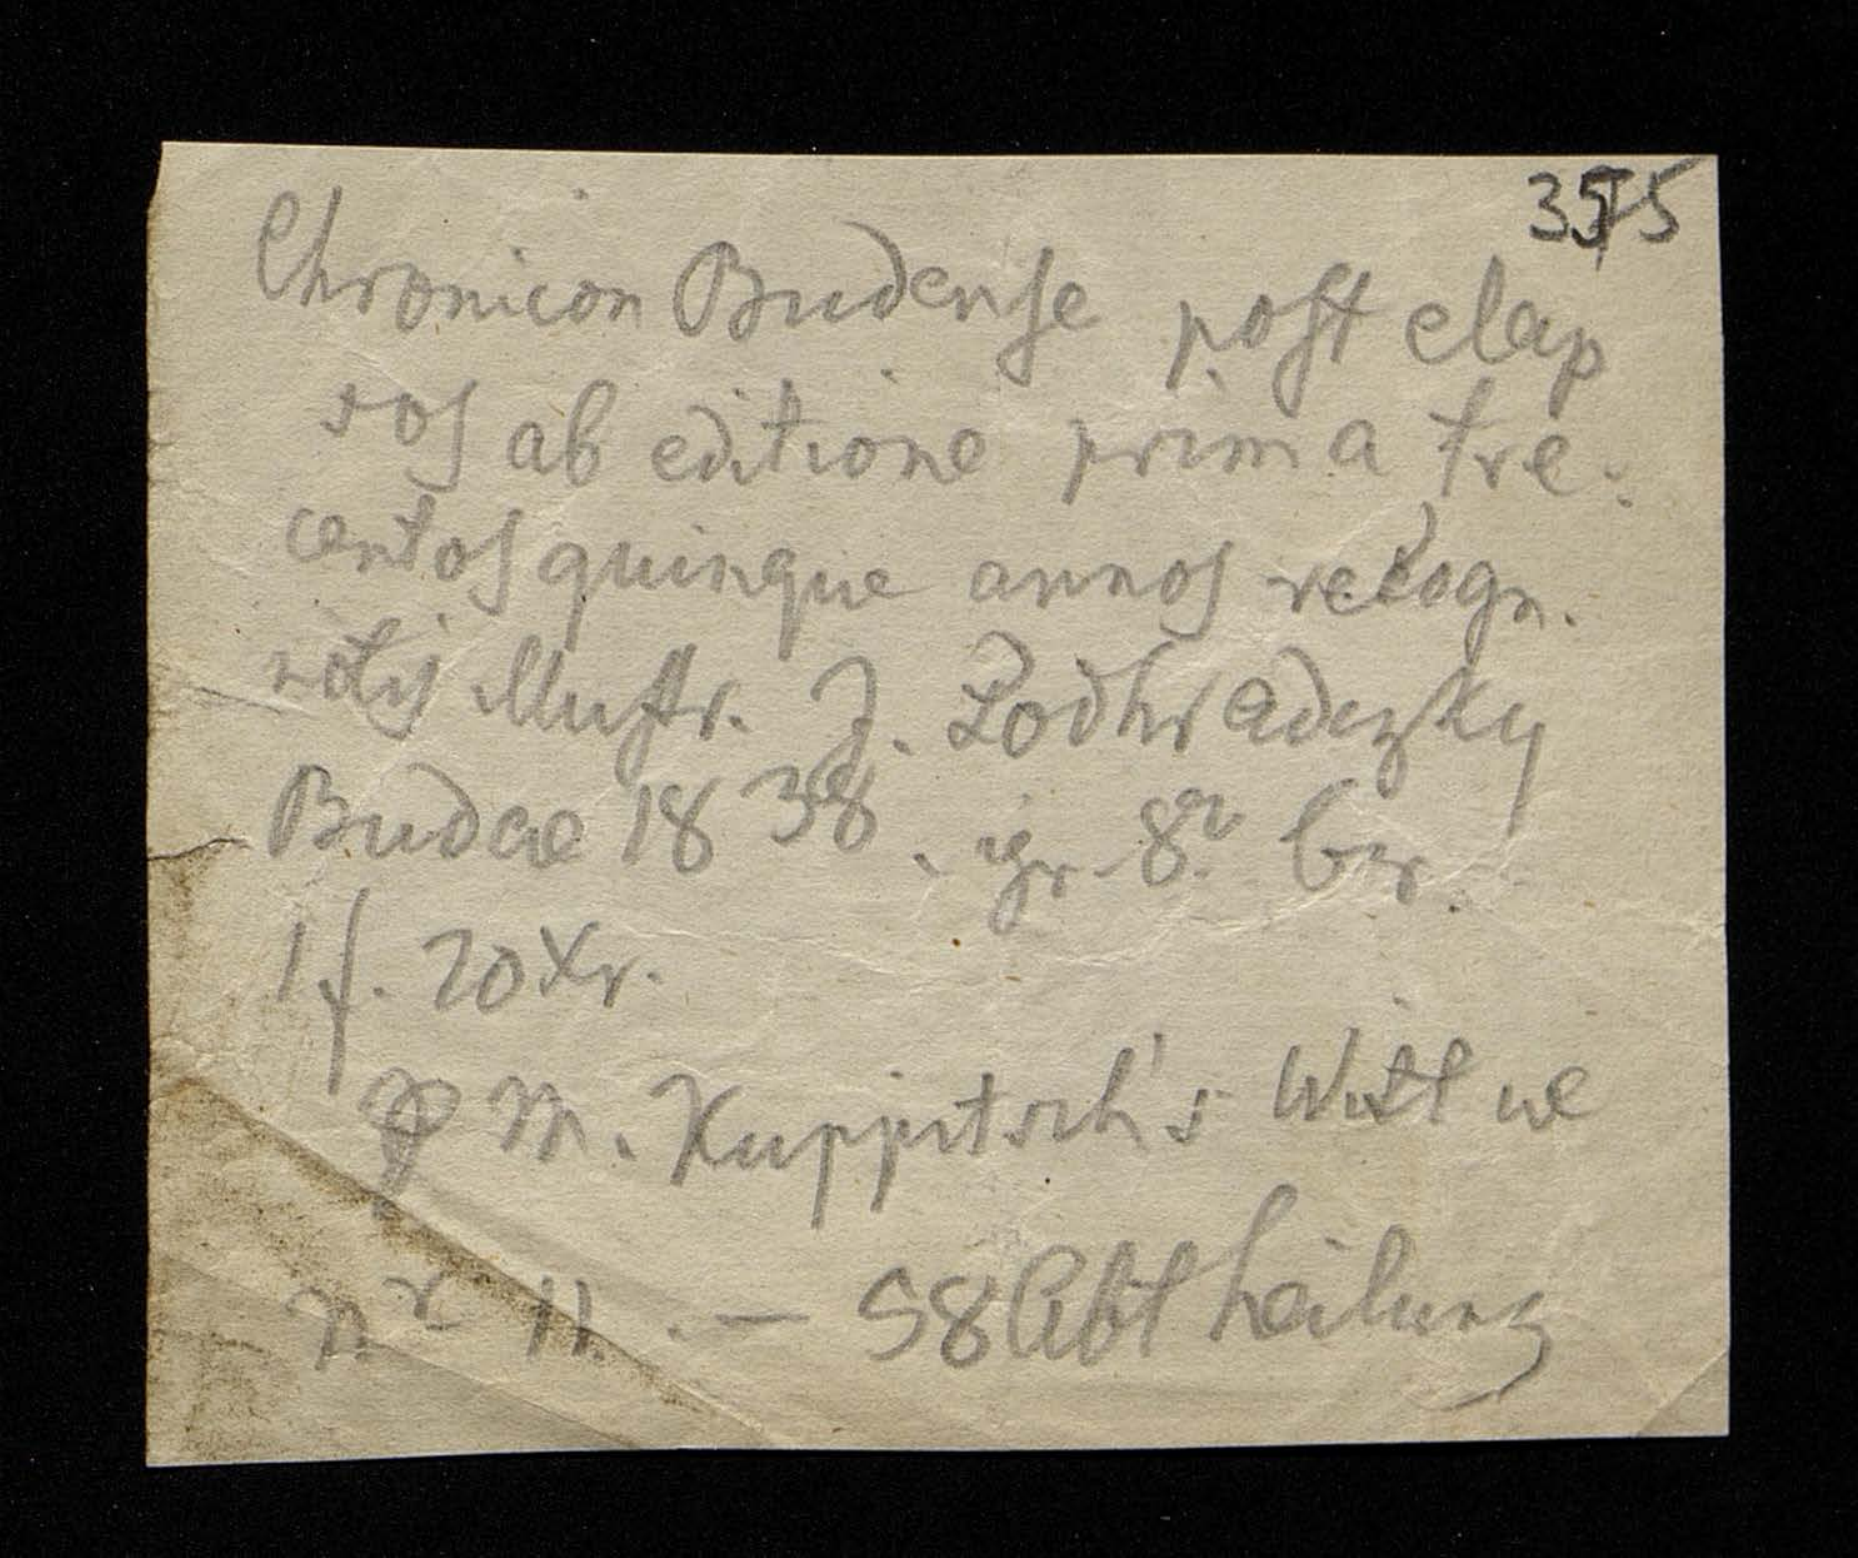 3575
Chronicon Budense post elap
sos ab editione prima tre-
centos quinque annos recogn.
notis illustr. J. Podhradczky
Budae 1838. gr 8º br.
1 f. 20 Xr.
M. Kuppitsch's Wittwe
nr 11. — 58 Abtheilung